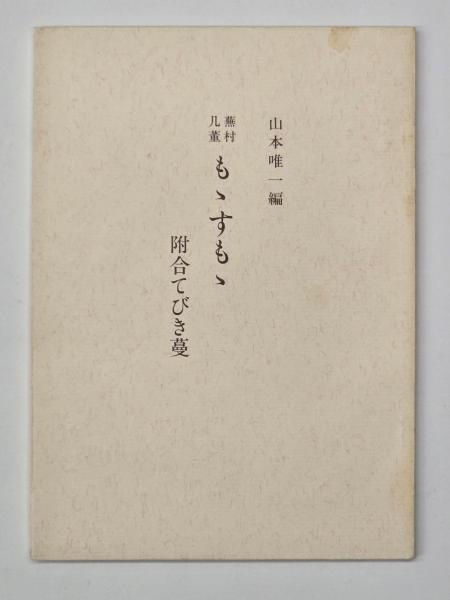 山本唯一編
蕪村
几董
もゝすもゝ
附合てびき蔓